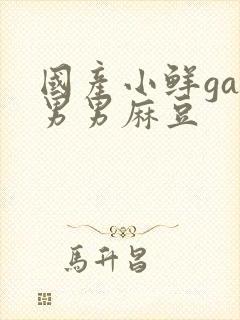 國產小鮮ga
男男麻豆
馬升昌